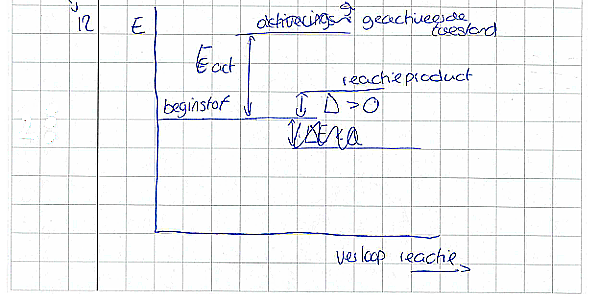 12 E geactiveerde
toestand
Eact
reactieproduct
beginstof Δ>0
verloop reactie